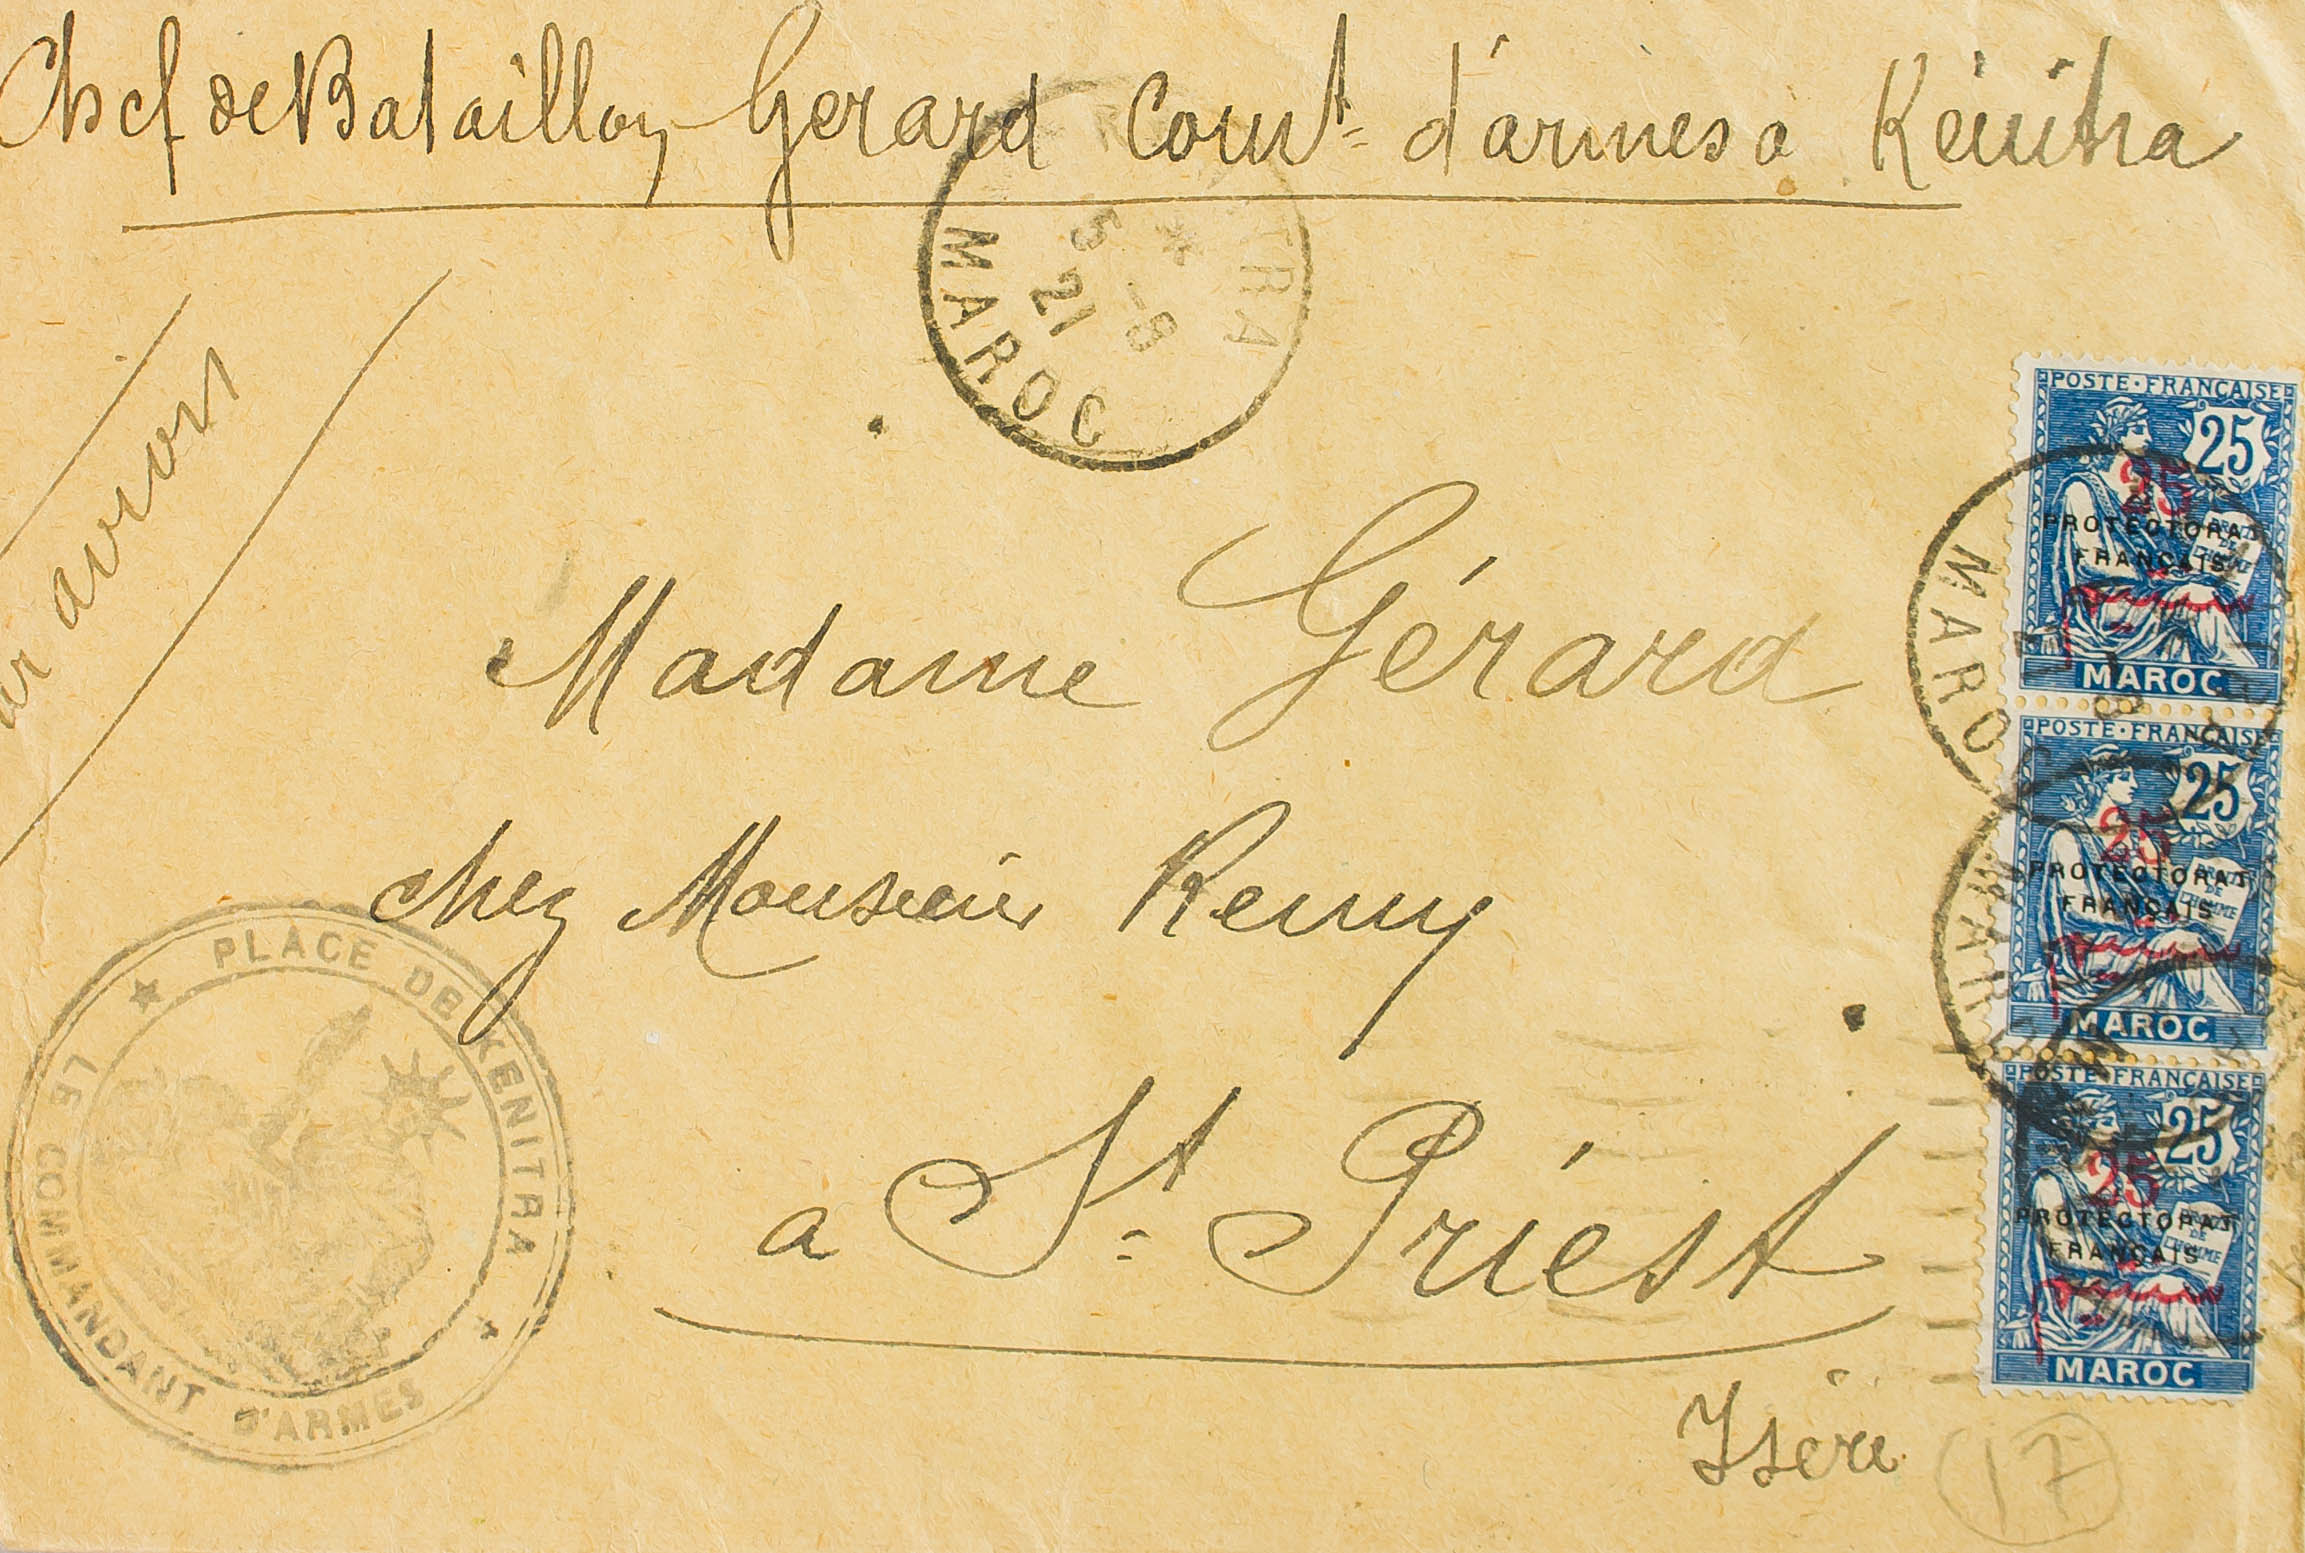 Chef de Bataillon Gerard Comt d'armes à Kénitra
MAROC
5 -8
21
TRA
avion
Madame Gérard
chez Monsieur Remy
a St Priest
Isère
17
PLACE DE KENITRA
LE COMMANDANT D'ARMES
POSTE·FRANÇAISE
25
25
PROTECTORAT
FRANÇAIS
MAROC
MAROC
POSTE·FRANÇAISE
25
25
PROTECTORAT
FRANÇAIS
DROITS
DE
L'HOMME
MAROC
MAROC
POSTE·FRANÇAISE
25
25
PROTECTORAT
FRANÇAIS
DE
L'HOMME
MAROC